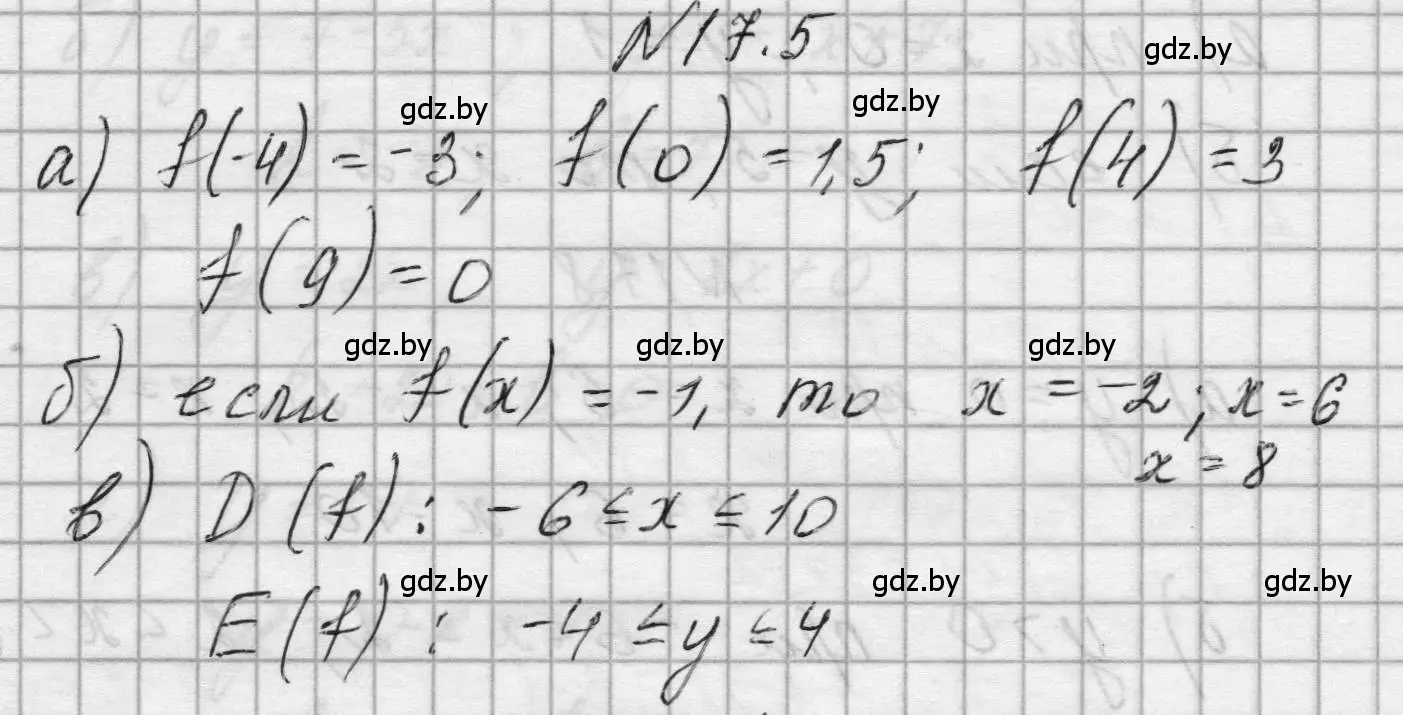 N17.5
gdz.by
gdz.by gdz.by
а) f(-4) = -3; f(0) = 1,5; f(4) = 3
f(9) = 0
gdz.by gdz.by gdz.by
б) если f(x) = -1, то x = -2; x = 6
x = 8
в) D(f): -6 ≤ x ≤ 10
gdz.by gdz.by gdz.by
E(f): -4 ≤ y ≤ 4